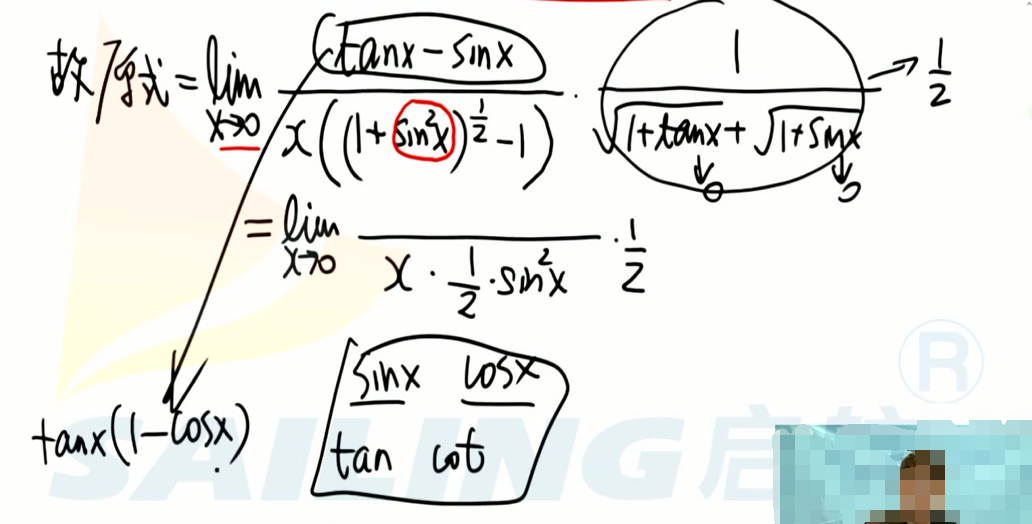 故原式 = lim x→0 (tanx - sinx) / x((1+sin²x)^½ - 1) · 1 / (√1+tanx + √1+sinx) → 1/2
↓0 ↓0
= lim x→0 / x · 1/2 · sin²x · 1/2
sinx cosx
tanx(1-cosx)
tan cot
SAILING 启航 ®